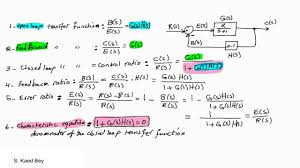 1 - open loop transfer function = B(s)/E(s) = G(s)H(s)
2 - Feed forward " " = C(s)/E(s) = G(s)
3 - Closed loop " = control ratio = C(s)/R(s) = G(s)/1 + G(s)H(s)
4 - Feedback ratio = B(s)/R(s) = G(s)H(s)/1 + G(s)H(s)
5 - Error ratio = E(s)/R(s) = R(s) - B(s)/R(s) = 1 - B(s)/R(s) = 1 - G(s)H(s)/1 + G(s)H(s) = 1/1 + G(s)H(s) = E(s)/R(s)
6 - characteristic equation = 1 + G(s)H(s) = 0
denominator of the closed loop transfer function
R(s) E(s) G(s) C(s)
B(s) H(s)
S. Kaed Bey